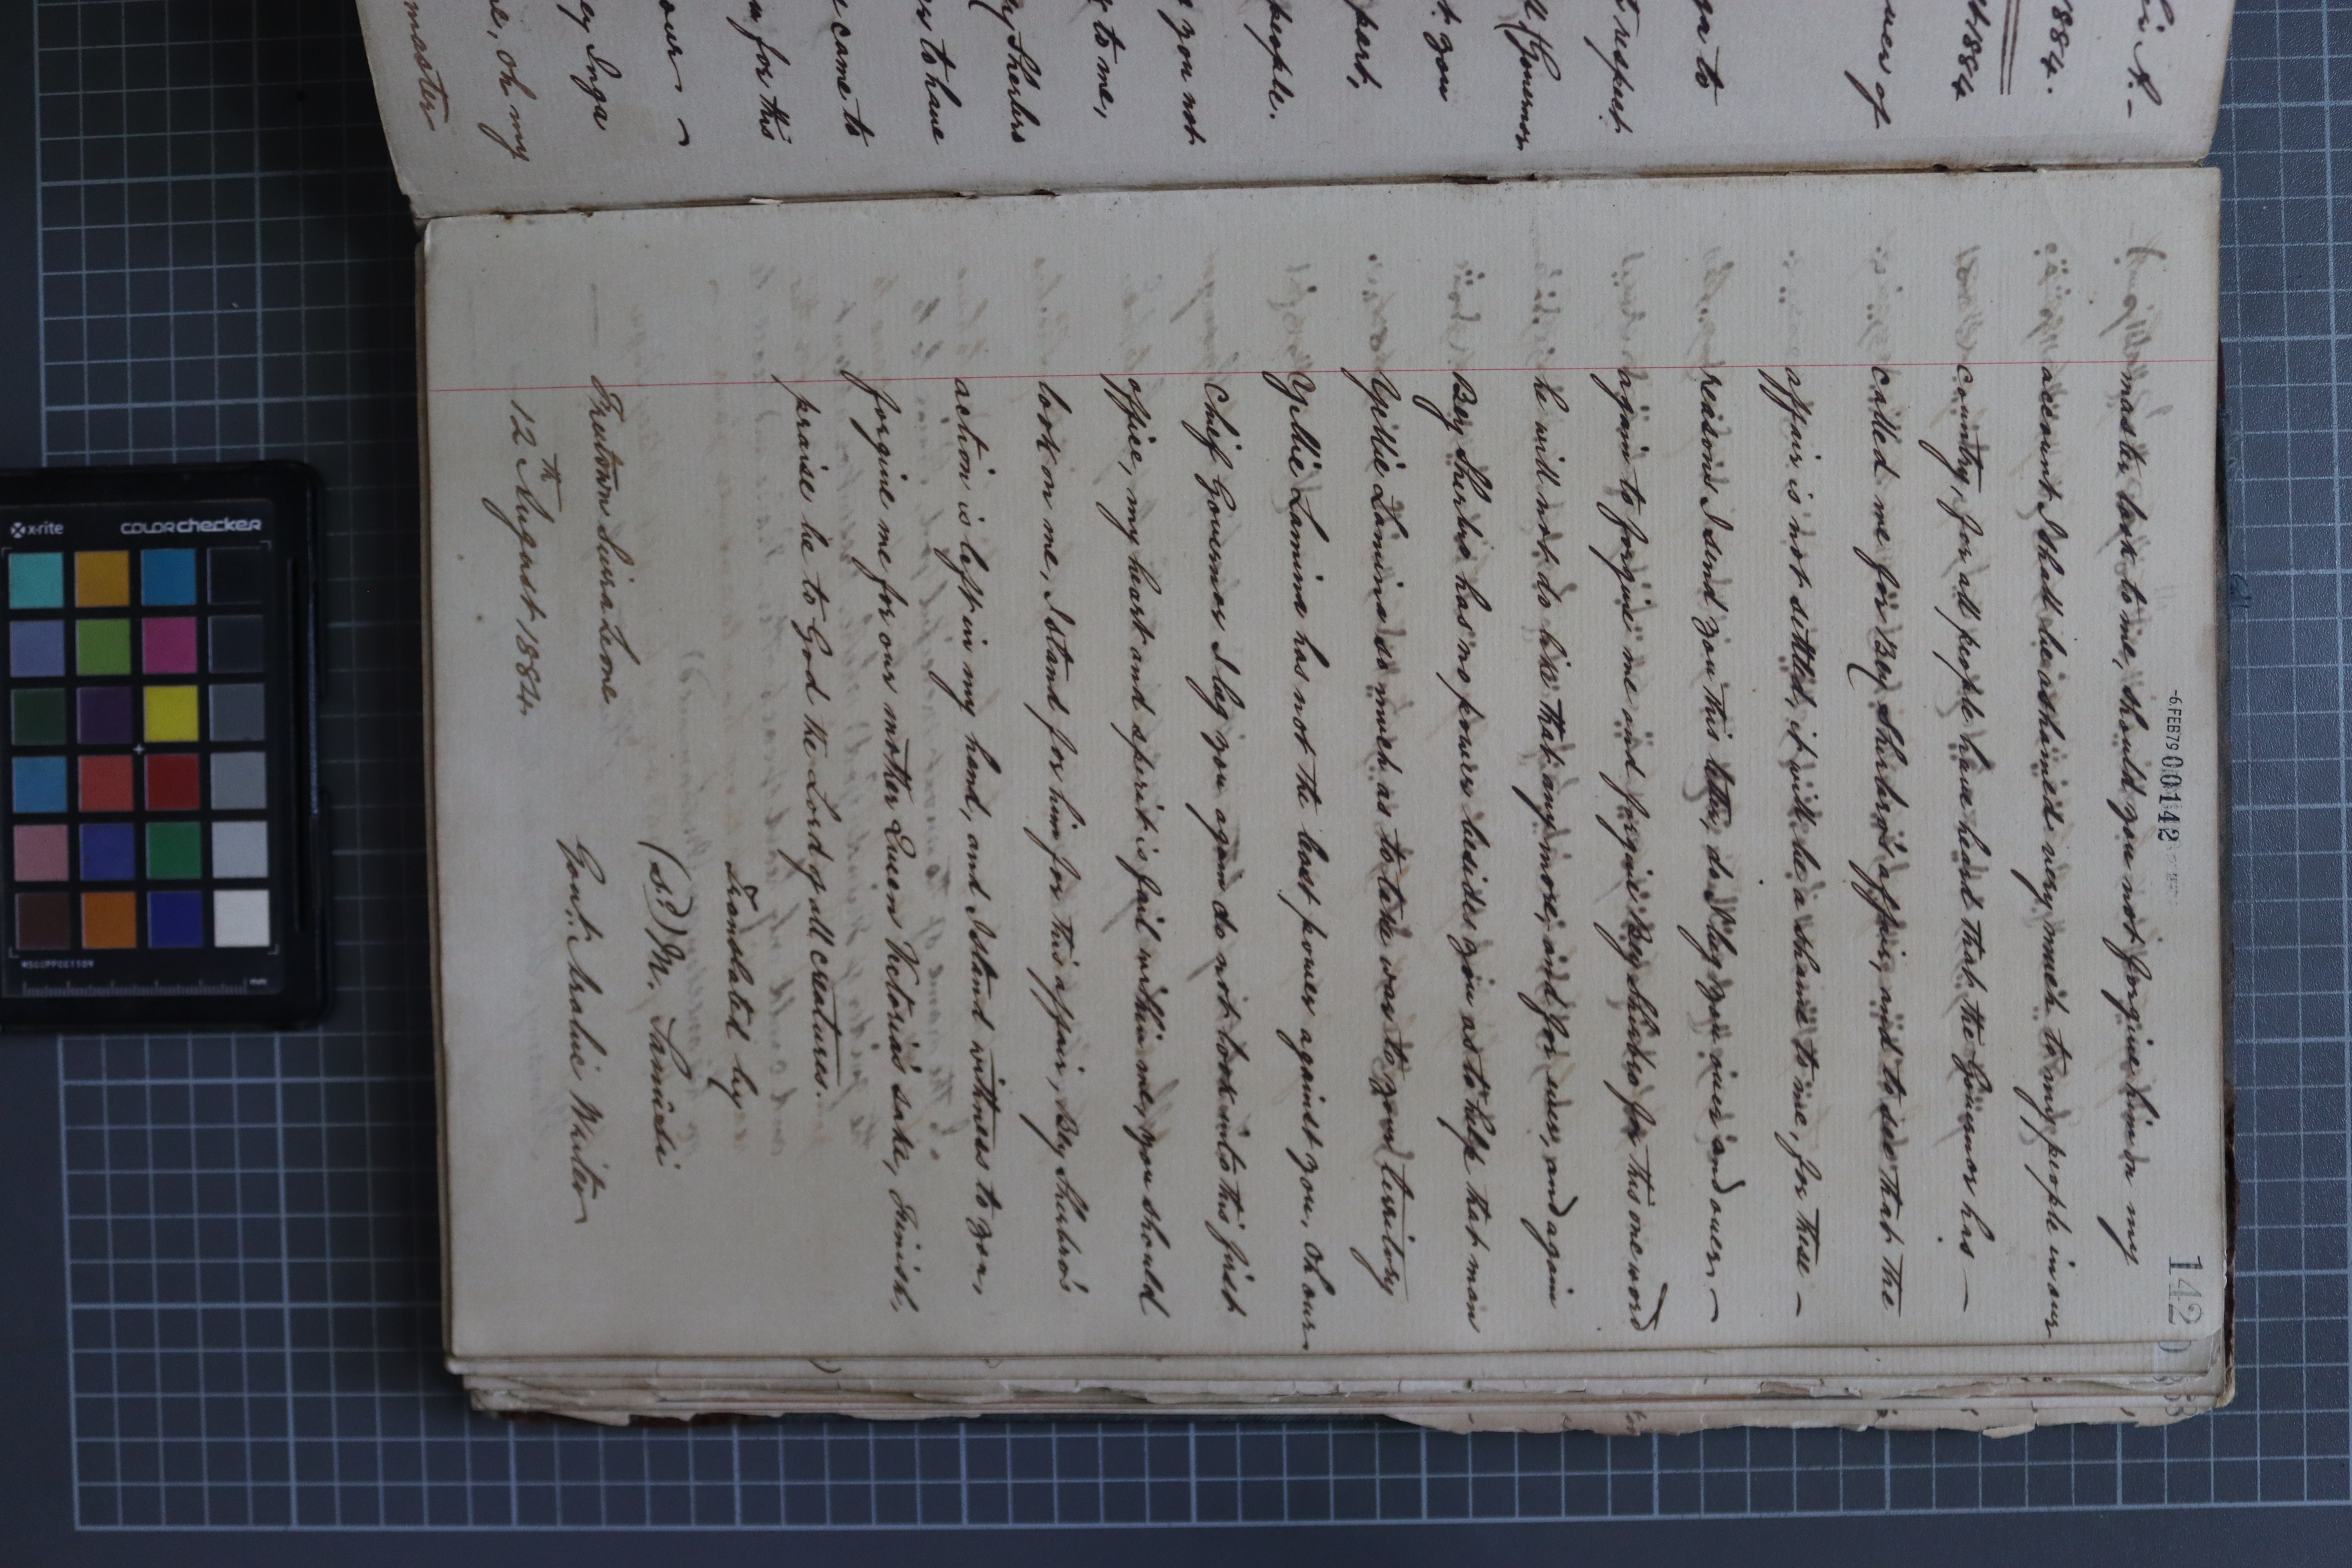 ri A. -
1884.
st 1884
ga to
t respect
(Governor
t you
part,
people.
you not
to me,
ey Sherbro
to have
came to
for this
our
ey Inga
oh my
master
-6 FEB 79 00142
142
master look to me, should you not forgive him on my
account I shall be ashamed very much to my people in our
country, for all people have heard that the Governor has -
called me for Bey Sherbro's affair, and to see that the
affair is not settled, it will be a shame to me, for these -
reasons I send you this letter, do I beg you over and over, -
again to forgive me and forgive Bey Sherbro for this one word
he will not do like that any more, and for ever, and again
Bey Sherbro has no power besides you as to help that man
Gbllie Lamina so much as to take war to your territory
Gbllie Lamina has not the least power against you, Oh our
Chief Governor I beg you again do not look into this first
office, my heart and spirit is fail within me, you should
look on me, I stand for him for this affair, Bey Sherbro's
action is left in my hand, and I stand witness to you,
forgive me for our mother Queen Victoria's sake, Finish,
praise be to God the Lord of all creatures.
Translated by
(Sd) M. Sanusi
Freetown Sierra Leone
Govt. Arabic Writer
12th August 1884.
x-rite
colorchecker
mm